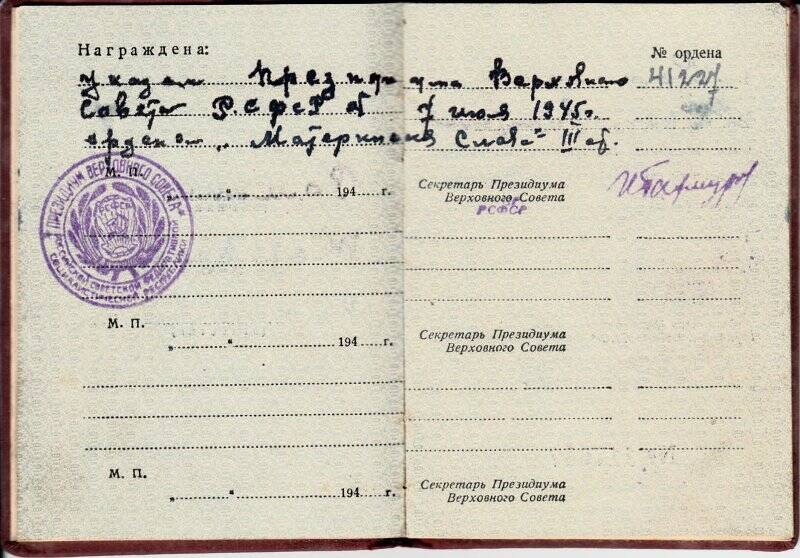 Награждена:
№ ордена
указом Президиума Верховного 41227
Совета РСФСР от 7 июля 1945г.
орденом „Материнская Слава" III ст.
М. П.
„ “ 194 г.
Секретарь Президиума
Верховного Совета
РСФСР
ПРЕЗИДИУМ ВЕРХОВНОГО СОВЕТА
РОССИЙСКОЙ СОВЕТСКОЙ ФЕДЕРАТИВНОЙ
СОЦИАЛИСТИЧЕСКОЙ РЕСПУБЛИКИ
М. П.
„ “ 194 г.
Секретарь Президиума
Верховного Совета
М. П.
„ “ 194 г.
Секретарь Президиума
Верховного Совета